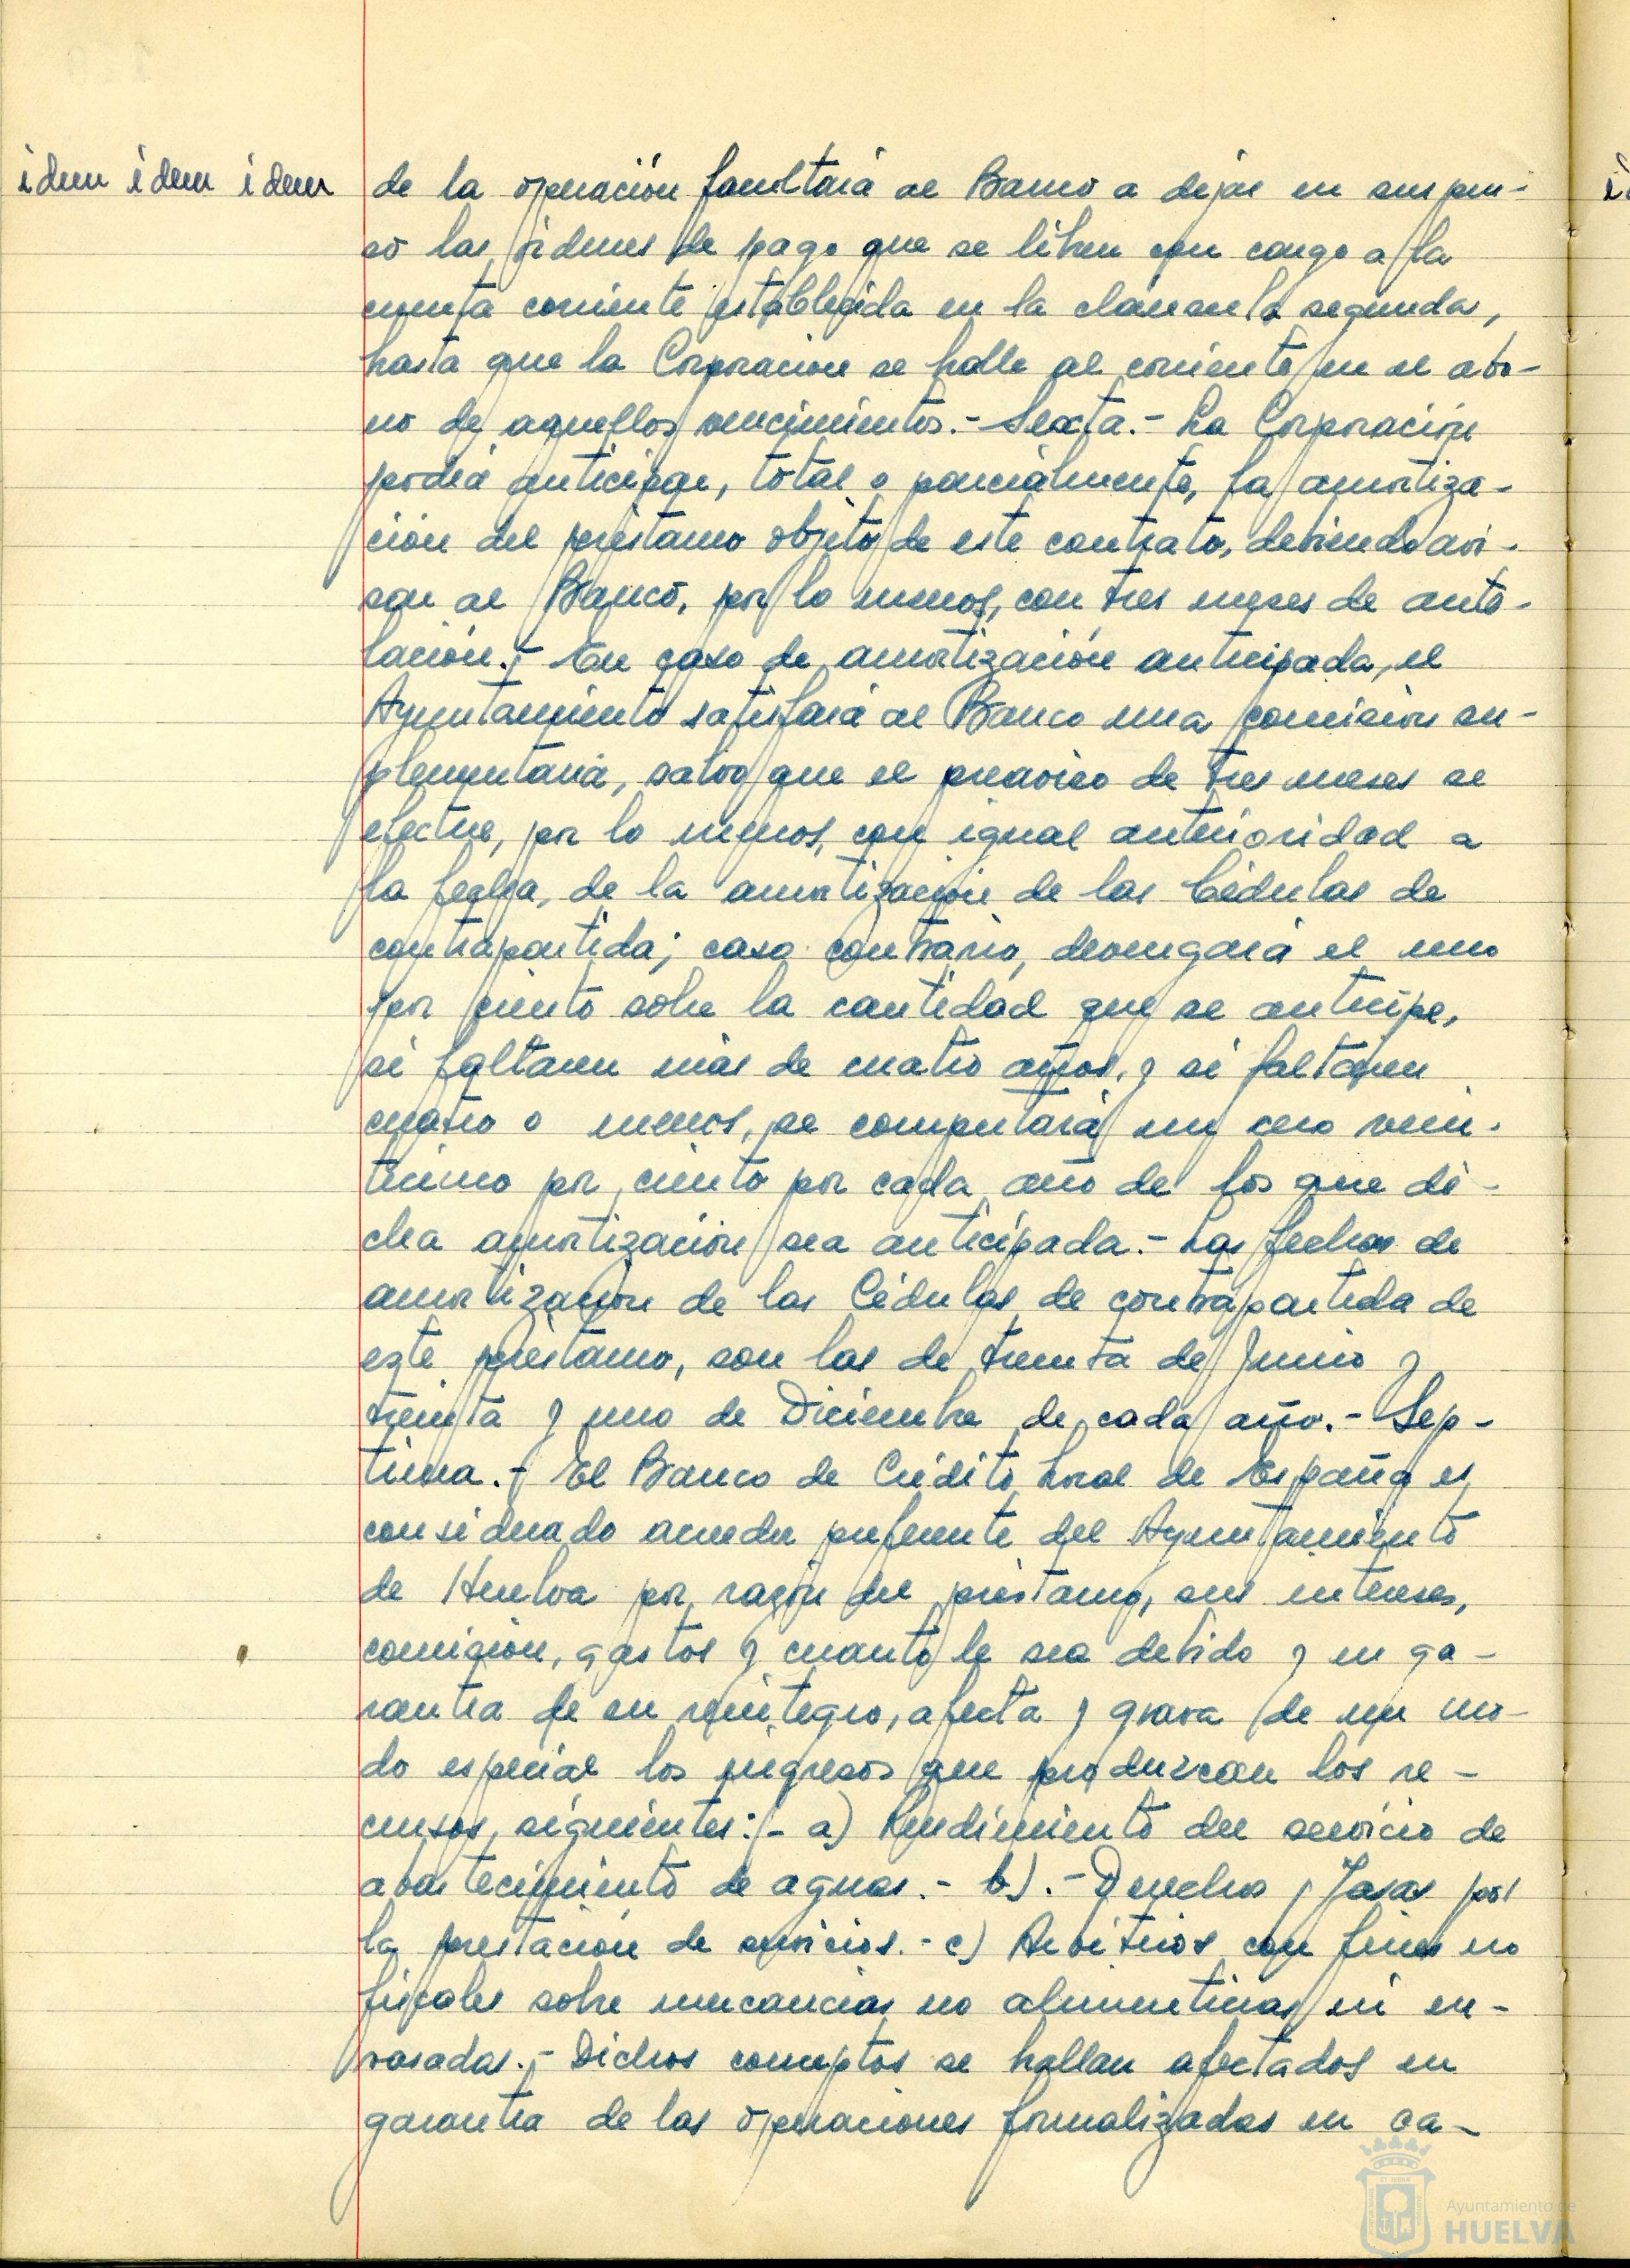 idem idem idem
de la operación facultará al Banco a dejar en suspen-
so las órdenes de pago que se libren con cargo a la
cuenta corriente establecida en la cláusula segunda,
hasta que la Corporación se halle al corriente en el abo-
no de aquellos vencimientos.- Sexta.- La Corporación
podrá anticipar, total o parcialmente, la amortiza-
ción del préstamo objeto de este contrato, debiendo avi-
sar al Banco, por lo menos, con tres meses de ante-
lación.- En caso de amortización anticipada, el
Ayuntamiento satisfará al Banco una comisión su-
plementaria, salvo que el preaviso de tres meses se
efectue, por lo menos, con igual anterioridad a
la fecha, de la amortización de las Cédulas de
contrapartida; caso contrario, devengará el uno
por ciento sobre la cantidad que se anticipe,
si faltaren más de cuatro años, y si faltaren
cuatro o menos, se computará un cero vein-
ticinco por ciento por cada año de los que di-
cha amortización sea anticipada.- Las fechas de
amortización de las Cédulas de contrapartida de
este préstamo, son las de treinta de Junio y
treinta y uno de Diciembre de cada año.- Sép-
tima.- El Banco de Crédito Local de España es
considerado acreedor preferente del Ayuntamiento
de Huelva por razón del préstamo, sus intereses,
comisión, gastos y cuanto le sea debido y en ga-
rantia de su reintegro, afecta y grava de un mo-
do especial los ingresos que produzcan los re-
cursos siguientes:- a) Rendimiento del servicio de
abastecimiento de aguas.- b).- Derechos y Tasas por
la prestación de servicios.- c) Arbitrios con fines no
fiscales sobre mercancias no alimenticias ni en-
vasadas.- Dichos conceptos se hallan afectados en
garantia de las operaciones formalizadas en ca-
Ayuntamiento de
HUELVA